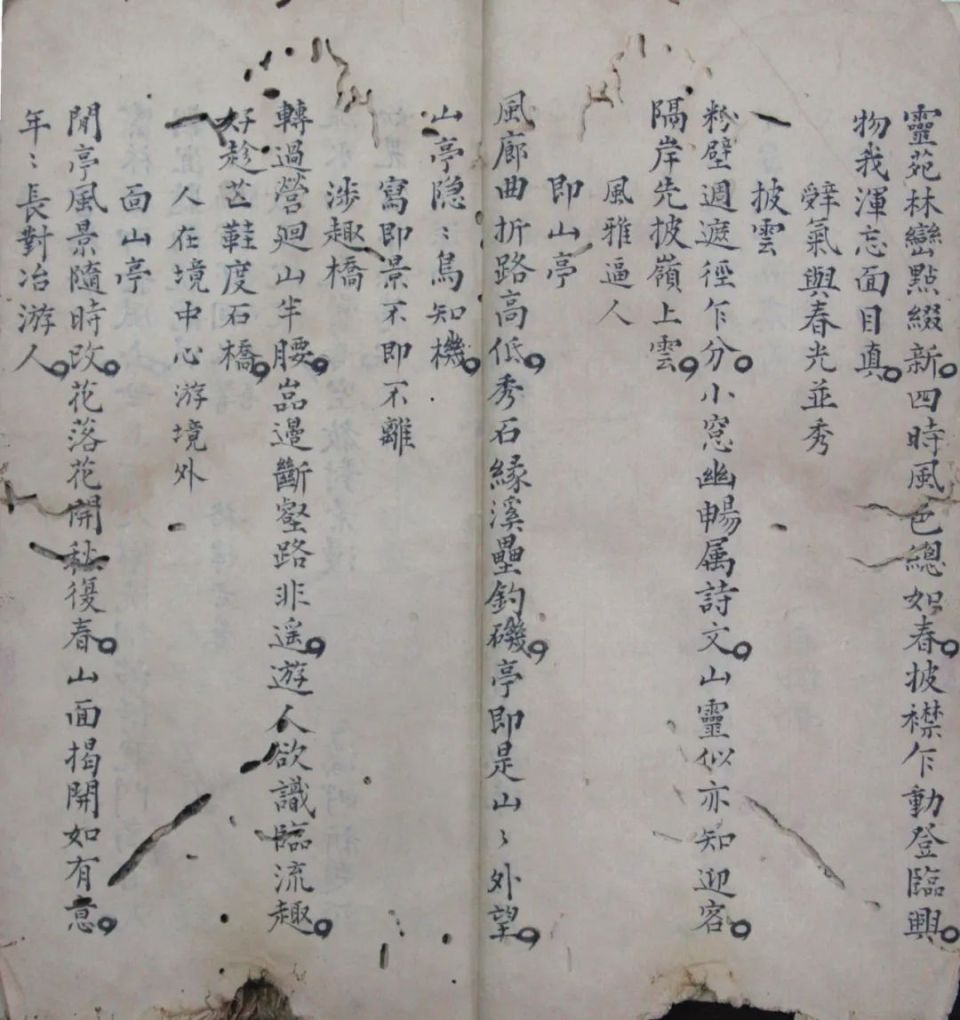 靈苑林巒點綴新四時風色總如春披襟乍動登臨興
物我渾忘面目真
辭氣與春光並秀
披雲
粉壁週遮徑乍分小窓幽暢属詩文山靈似亦知迎客
隔岸先披嶺上雲
風雅逼人
即山亭
風廊曲折路高低秀石緣溪壘釣磯亭即是山〻外望
山亭隐〻鳥知機
寫即景不即不離
涉趣橋
轉過營廻山半腰嵓邊斷壑路非遥遊人欲識臨流趣
好趁芒鞋度石橋
人在境中心游境外
面山亭
閒亭風景隨時改花落花開秋復春山面揭開如有意
年〻長對冶游人